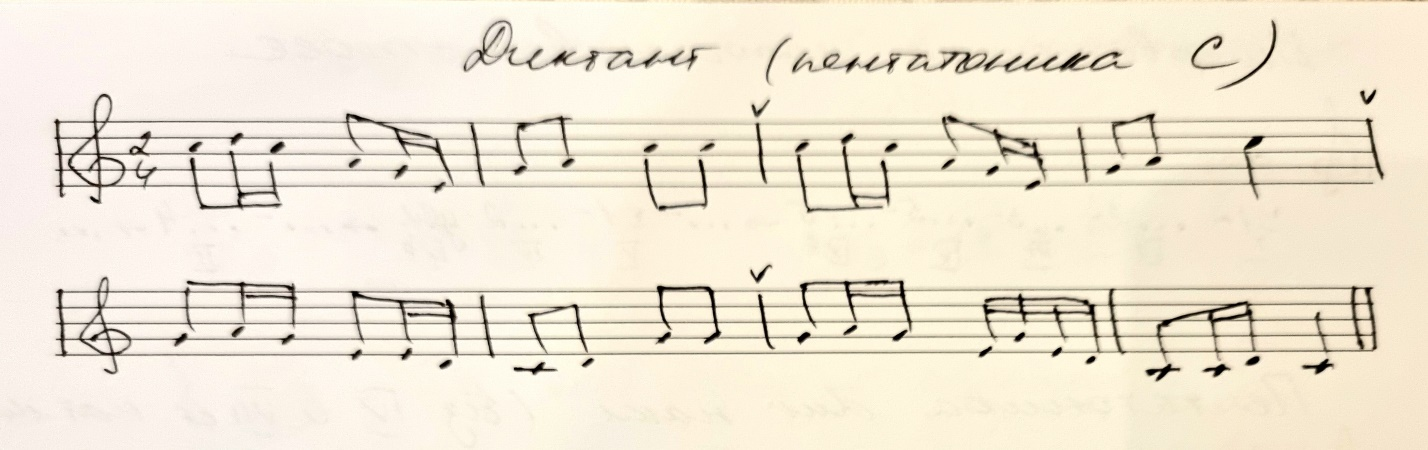 Диктант (пентатоника C)
2
4